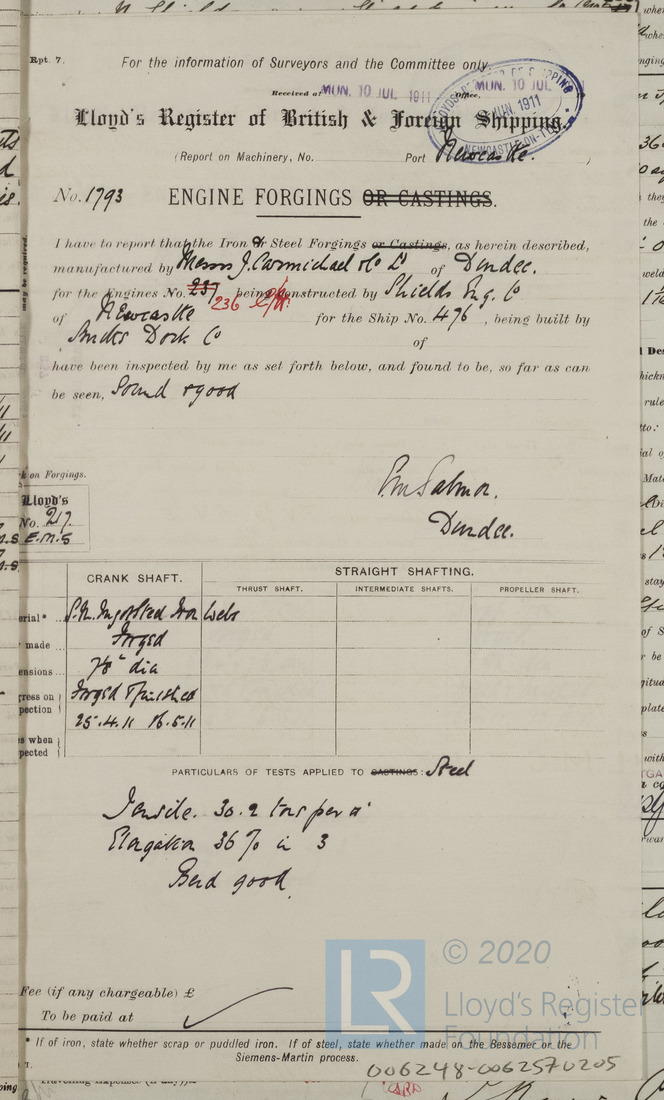 Rpt. 7.
For the information of Surveyors and the Committee only.
Received at MON. 10 JUL 1911 Office,
Lloyd's Register of British & Foreign Shipping.
LLOYDS REGISTER OF SHIPPING
JUN 1911
NEWCASTLE-ON-TYNE
(Report on Machinery, No. Port Newcastle. )
No. 1793 ENGINE FORGINGS OR CASTINGS.
I have to report that the Iron or Steel Forgings or Castings, as herein described,
manufactured by Messrs J. Carmichael & Co Ld of Dundee.
for the Engines No. 237 being constructed by Shields Eng. Co
236
of Newcastle for the Ship No. 476, being built by
Dock Co of
have been inspected by me as set forth below, and found to be, so far as can
be seen, Sound & good
may be required.
on Forgings.
Lloyd's
No. 217.
E.M.S
E.M. Salmon.
Dundee.
CRANK SHAFT.
STRAIGHT SHAFTING.
THRUST SHAFT. INTERMEDIATE SHAFTS. PROPELLER SHAFT.
erial* S.M. Ingot Steel Iron Webs
made Forged
ensions 7⅞" dia
ress on Forged & finished
pection
25.4.11 16.5.11
s when
pected
PARTICULARS OF TESTS APPLIED TO CASTINGS: Steel
Tensile. 30.2 tons per □"
Elongation 36% in 3
Bend good
Fee (if any chargeable) £
To be paid at
* If of iron, state whether scrap or puddled iron. If of steel, state whether made on the Bessemer or the
Siemens-Martin process.
LR
© 2020
Lloyd's Register
Foundation
006248-006257-0205